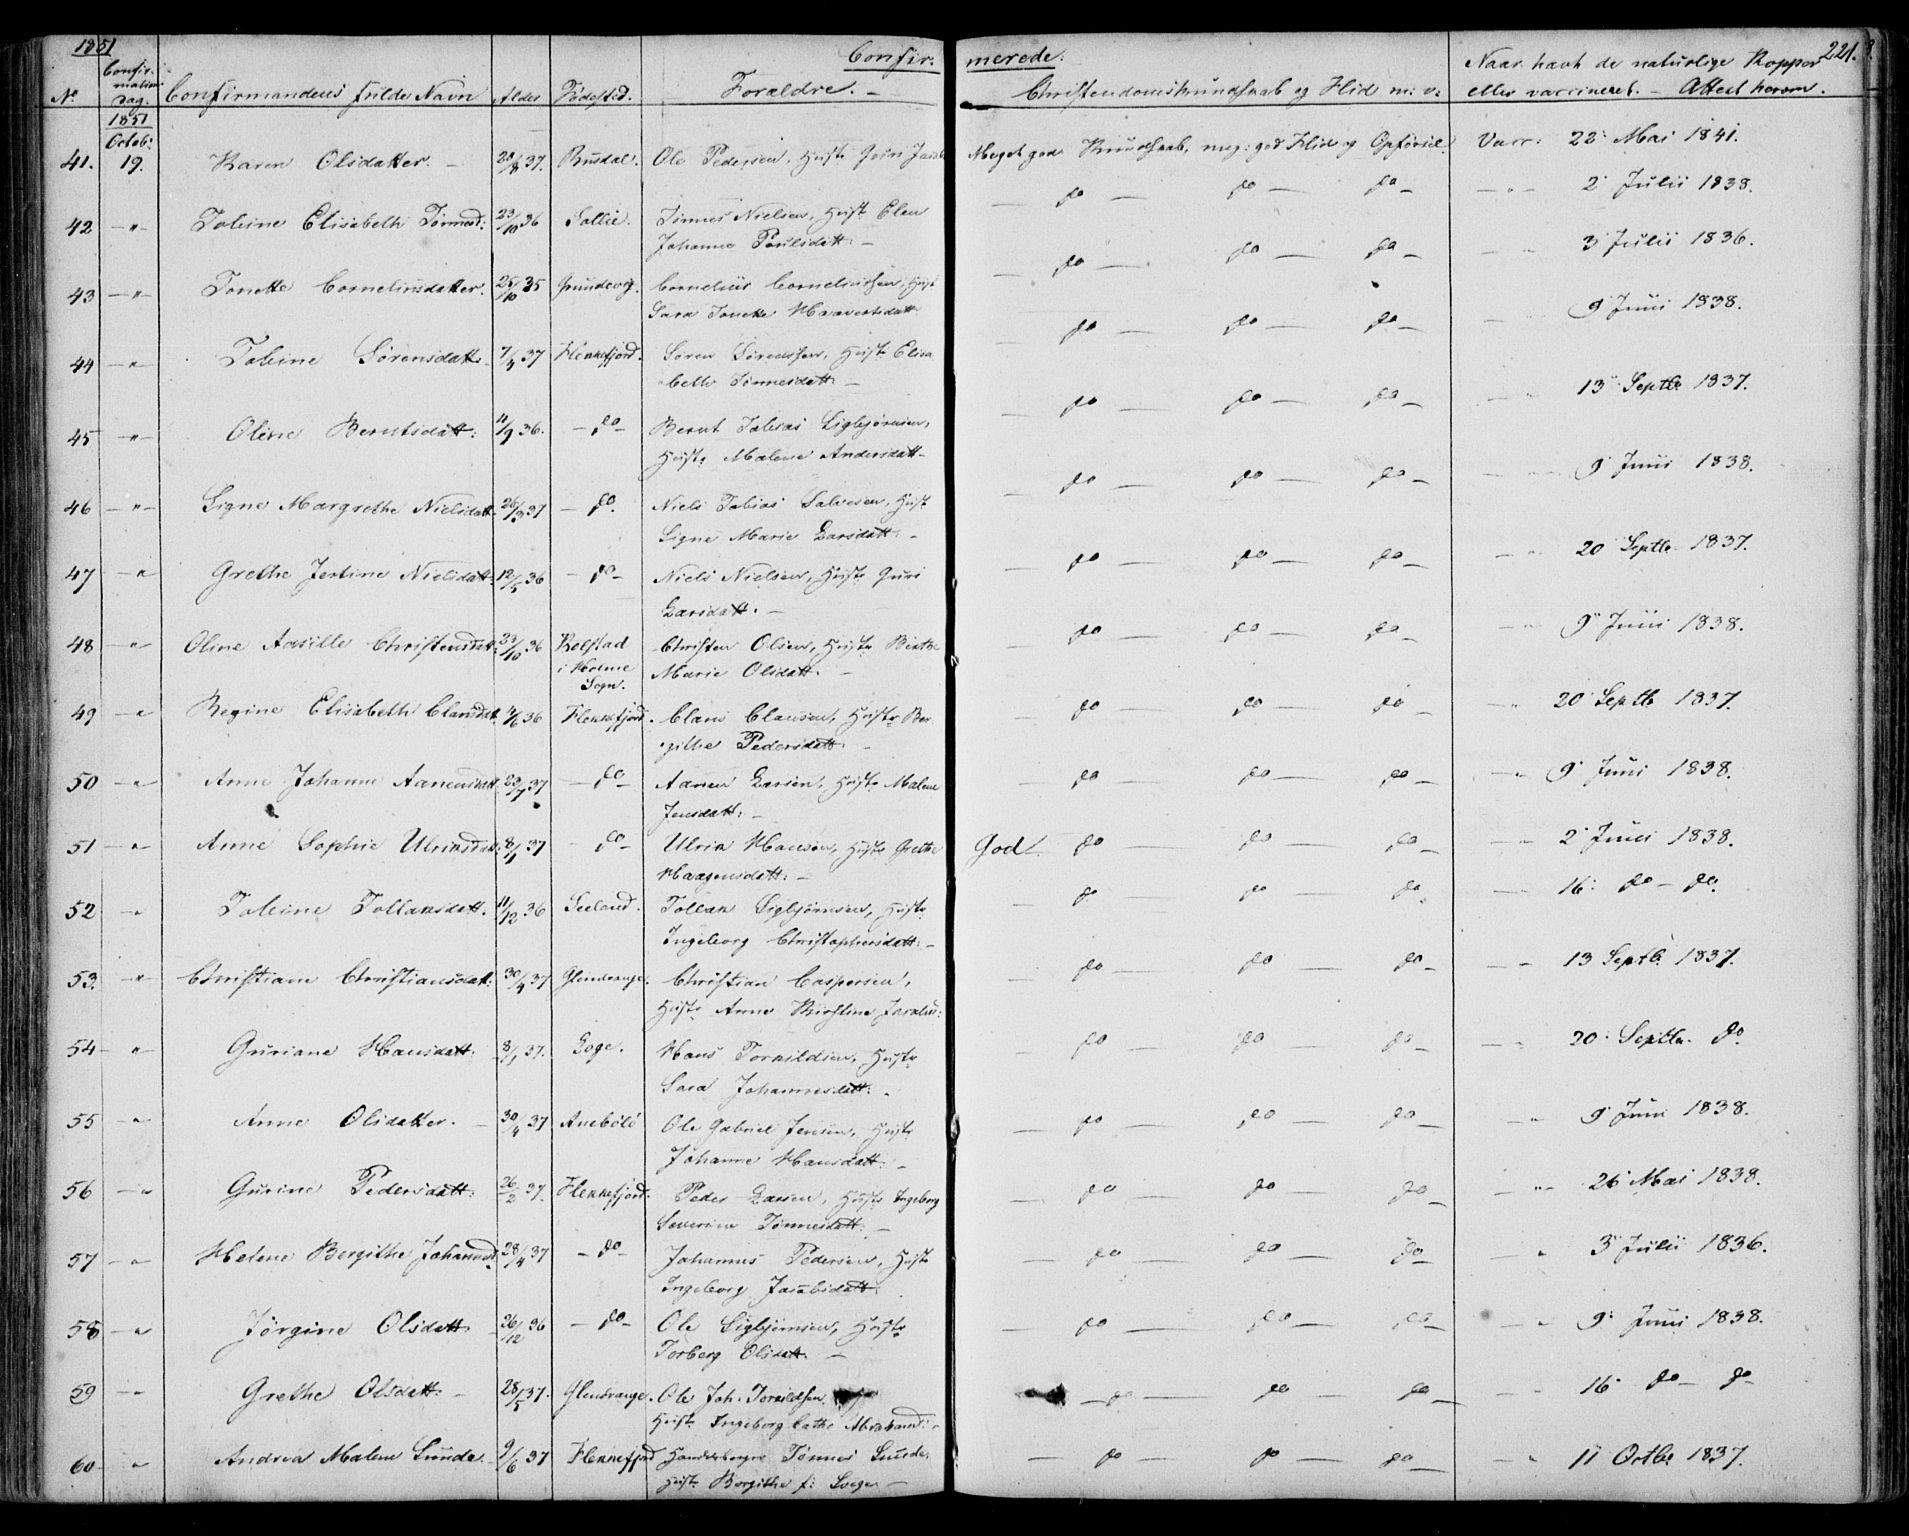 1851
Confirmerede.
221.
No
Confir-
mations
Dag.
Confirmandens fulde Navn
Alder
Fødested.
Forældre. –
Christendomskundskab og Flid m: v:
Naar havt de naturlige Kopper
eller vaccineret. – Attest herom.
1851
Octob:
41. 19. Karen Olsdatter. – 20/8 37. Rusdal. Ole Pedersen, Hust: Guri Meget god Kundskab, meg: god Flid og Opførsel. Vacc: 22 Mai 1841.
42 –"– Tobine Elisabeth Tønnesd: 23/10 36 Sallie. Tønnes Nielsen, Hust: Elen – do – do – do – –"– 2 Julii 1838.
Johanne Poulsdatt: –
43 –"– Tonette Corneliusdatter. 25/10 35 Cornelius Corneliussen, Hust – do – do – do – 3 Julii 1836.
Sara Tonette
44 –"– Tobine Sørensdatt: 7/4 37 Flekkefjord. Søren Sørensen, Hust: Elisa – do – do – do – 9 Junii 1838.
beth Tønnesdatt: –
45 –"– Oline Berntsdatt: 11/9 36. – do – Bernt Tobias Sigbjørnsen, – do – do – do – 13 Septb: 1837.
Hust: Malene Andersdatt –
46 –"– Signe Margrethe Nielsdatt. 26/3 37 – do. Niels Tobias Salvesen, Hust – do – do – do – 9 Junii 1838.
Signe Marie Larsdatt: –
47 –"– Grethe Jertine Nielsdatt: 12/5 36 – do – Niels Nielsen, Hust: Guri – do – do – do – –"– 20 Septb. 1837.
Larsdatt. –
48 –"– Oline Aasille Christensdatt: 23/10 36 Kolstad Christen Olsen, Hust: Birthe – do – do – do – –"– 9 Junii 1838.
i Holme Marie Olsdatt. –
Sogn.
49 –"– Regine Elisabeth Clausdatt. 4/6 36 Flekkefjord. Claus Clausen, Hust: Ber – do – do – do – –"– 20 Septb 1837.
githe Pedersdatt: –
50 –"– Anne Johanne Aanensdatt. 23/1 37 – do – Aanen Larsen, Hust: Malene – do – do – do – –"– 9 Junii 1838.
Jensdatt: –
51 –"– Anne Sophie Ulriksdatt: 8/1 37 – do – Ulrik Hansen, Hust: Grethe God. do – do – do – –"– 2 Junii 1838.
Haagensdatt: –
52 –"– Tobine Tollaksdatt. 11/12 36 Seeland. Tollak Sigbjørnsen, Hust: – do – do – do. –"– 16: do – do.
Ingeborg Christophersdatt: –
53. –"– Christiane Christiansdatt: 30/4 37 Glendrange. Christian Caspersen, – do – do – do – –"– 13 Septb: 1837.
Hust: Anne Kirstine
54 –"– Guriane Hansdatt: 8/1 37. Loge. Hans Torkildsen, Hust: – do – do – do – –"– 20: Septbr. do.
Sara Johannesdatt: –
55 –"– Anne Olsdatter. – 30/4 37 Ole Gabriel Jensen, Hust: – do – do – do – –"– 9 Juni 1838.
Johanne Hansdatt: –
56 –"– Gurine Pedersdatt: 26/2 37. Flekkefjord. Peder Larsen, Hust: Ingeborg – do – do – do – –"– 26 Mai 1838.
Severine Tønnesdatt: –
57 –"– Helene Bergithe Johannesd: 28/4 37 – do – Johannes Pedersen, Hust: – do – do – do – –"– 3 Julii 1836.
Ingeborg Jacobsdatt:
58 –"– Jørgine Olsdatt 26/12 36 – do – Ole Sigbjørnsen, Hust: – do – do – do – –"– 9: Junii 1838.
Torborg Olsdatt. –
59 –"– Grethe Olsdatt: – 28/5 37. Glendrange. Ole Joh. Toraldsen – do – do – do – –"– 16 do – do
Hust: Ingeborg Cathr.
60 –"– Andrea Malene Sunde – 9/6 37 Flekkefjord Tønnes Sunde, – do – do – do – –"– 11 Octbr 1837.
Hust: Bergithe f: –